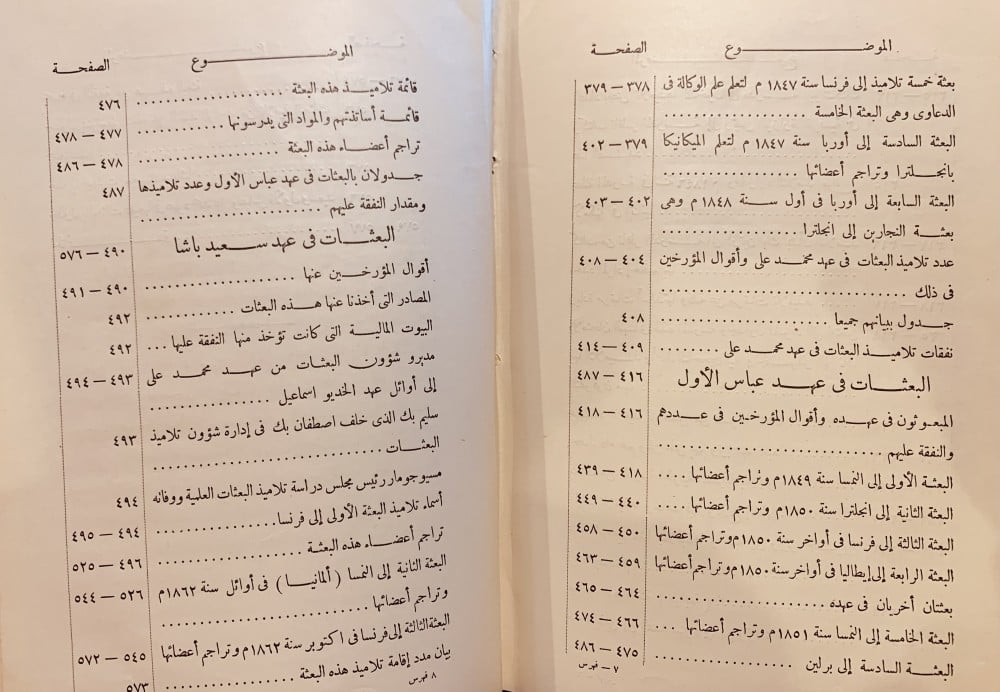 الموضوع الصفحة
بعثة خمسة تلاميذ إلى فرنسا سنة ١٨٤٧ م لتعلم علم الوكالة فى ٣٧٨ — ٣٧٩
الدعاوى وهى البعثة الخامسة ....................
البعثة السادسة إلى أوربا سنة ١٨٤٧ م لتعلم الميكانيكا ٣٧٩ — ٤٠٢
بانجلترا وتراجم أعضائها ....................
البعثة السابعة إلى أوربا فى أول سنة ١٨٤٨ م وهى ٤٠٢ — ٤٠٣
بعثة النجارين إلى انجلترا ....................
عدد تلاميذ البعثات فى عهد محمد على وأقوال المؤرخين ٤٠٤ — ٤٠٨
فى ذلك ....................
جدول ببياتهم جميعا .................... ٤٠٨
نفقات تلاميذ البعثات فى عهد محمد على ......... ٤٠٩ — ٤١٤
البعثات فى عهد عباس الأول ٤١٦ — ٤٨٧
المبعوثون فى عهده وأقوال المؤرخين فى عددهم ٤١٦ — ٤١٨
والنفقة عليهم ....................
البعثة الأولى إلى النمسا سنة ١٨٤٩ م وتراجم أعضائها .... ٤١٨ — ٤٣٩
البعثة الثانية إلى انجلترا سنة ١٨٥٠ م وتراجم أعضائها .... ٤٤٠ — ٤٤٩
البعثة الثالثة إلى فرنسا فى أواخر سنة ١٨٥٠ م وتراجم أعضائها ٤٥٠ — ٤٥٨
البعثة الرابعة إلى إيطاليا فى أواخر سنة ١٨٥٠ م وتراجم أعضائها ٤٥٩ — ٤٦٣
بعثتان أخريان فى عهده .................... ٤٦٤ — ٤٦٥
البعثة الخامسة إلى النمسا سنة ١٨٥١ م وتراجم أعضائها ... ٤٦٦ — ٤٧٤
البعثة السادسة إلى برلين .................... ٤٧٥ — ٤٨٦
٧ — فهرس
الموضوع الصفحة
قائمة تلاميذ هذه البعثة .................... ٤٧٦
قائمة أساتذتهم والمواد التى يدرسونها ............ ٤٧٧ — ٤٧٨
تراجم أعضاء هذه البعثة .................... ٤٧٨ — ٤٨٦
جدولان بالبعثات فى عهد عباس الأول وعدد تلاميذها ٤٨٧
ومقدار النفقة عليهم ....................
البعثات فى عهد سعيد باشا ٤٩٠ — ٥٧٦
أقوال المؤرخين عنها .................... ٤٩٠ — ٤٩١
المصادر التى أخذنا عنها هذه البعثات ............ ٤٩٢
البيوت المالية التى كانت تؤخذ منها النفقة عليها ... ٤٩٢
مديرو شؤون البعثات من عهد محمد على ٤٩٣ — ٤٩٤
إلى أوائل عهد الخديو اسماعيل ................
سليم بك الذى خلف اصطفان بك فى إدارة شؤون تلاميذ ٤٩٣
البعثات ....................
مسيو جومار رئيس مجلس دراسة تلاميذ البعثات العلمية ووفاته ٤٩٤
أسماء تلاميذ البعثة الأولى إلى فرنسا ............ ٤٩٤ — ٤٩٥
تراجم أعضاء هذه البعثة .................... ٤٩٦ — ٥٢٥
البعثة الثانية إلى النمسا (ألمانيا) فى أوائل سنة ١٨٦٢ م ٥٢٦ — ٥٤٤
وتراجم أعضائها ....................
البعثة الثالثة إلى فرنسا فى اكتوبر سنة ١٨٦٢ م وتراجم أعضائها ٥٤٥ — ٥٧٢
بيان مدد إقامة تلاميذ هذه البعثة ................ ٥٧٣
٨ فهرس